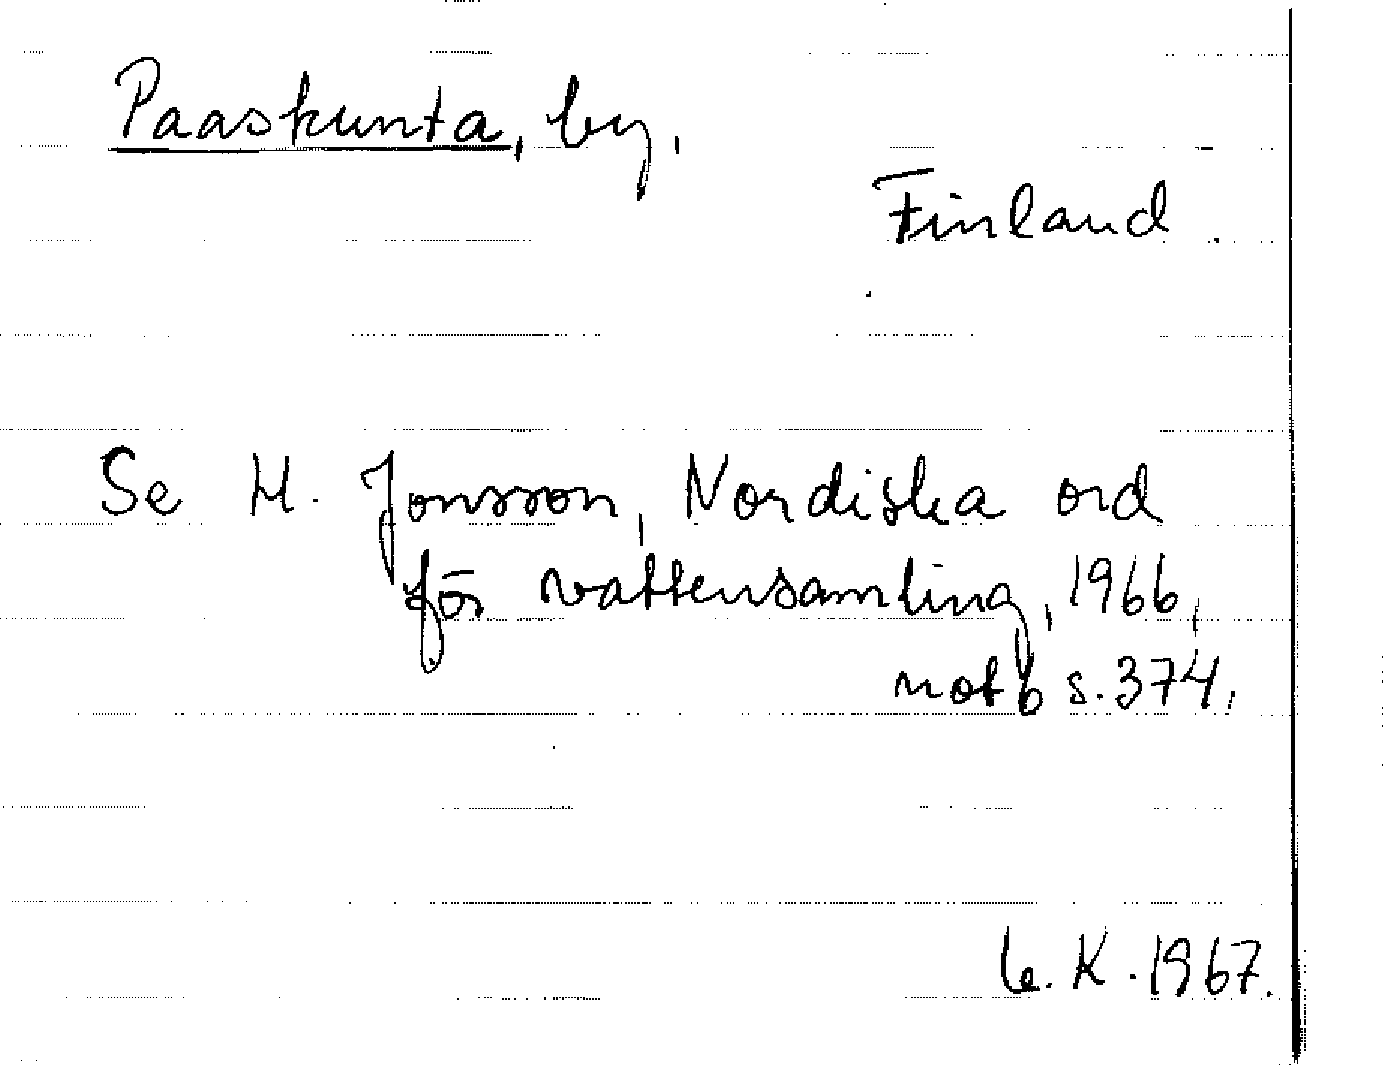 Paaskunta, by,
Finland.
Se H. Jonsson, Nordiska ord
för vattensamling, 1966,
not 6 s. 374.
K. 1967.